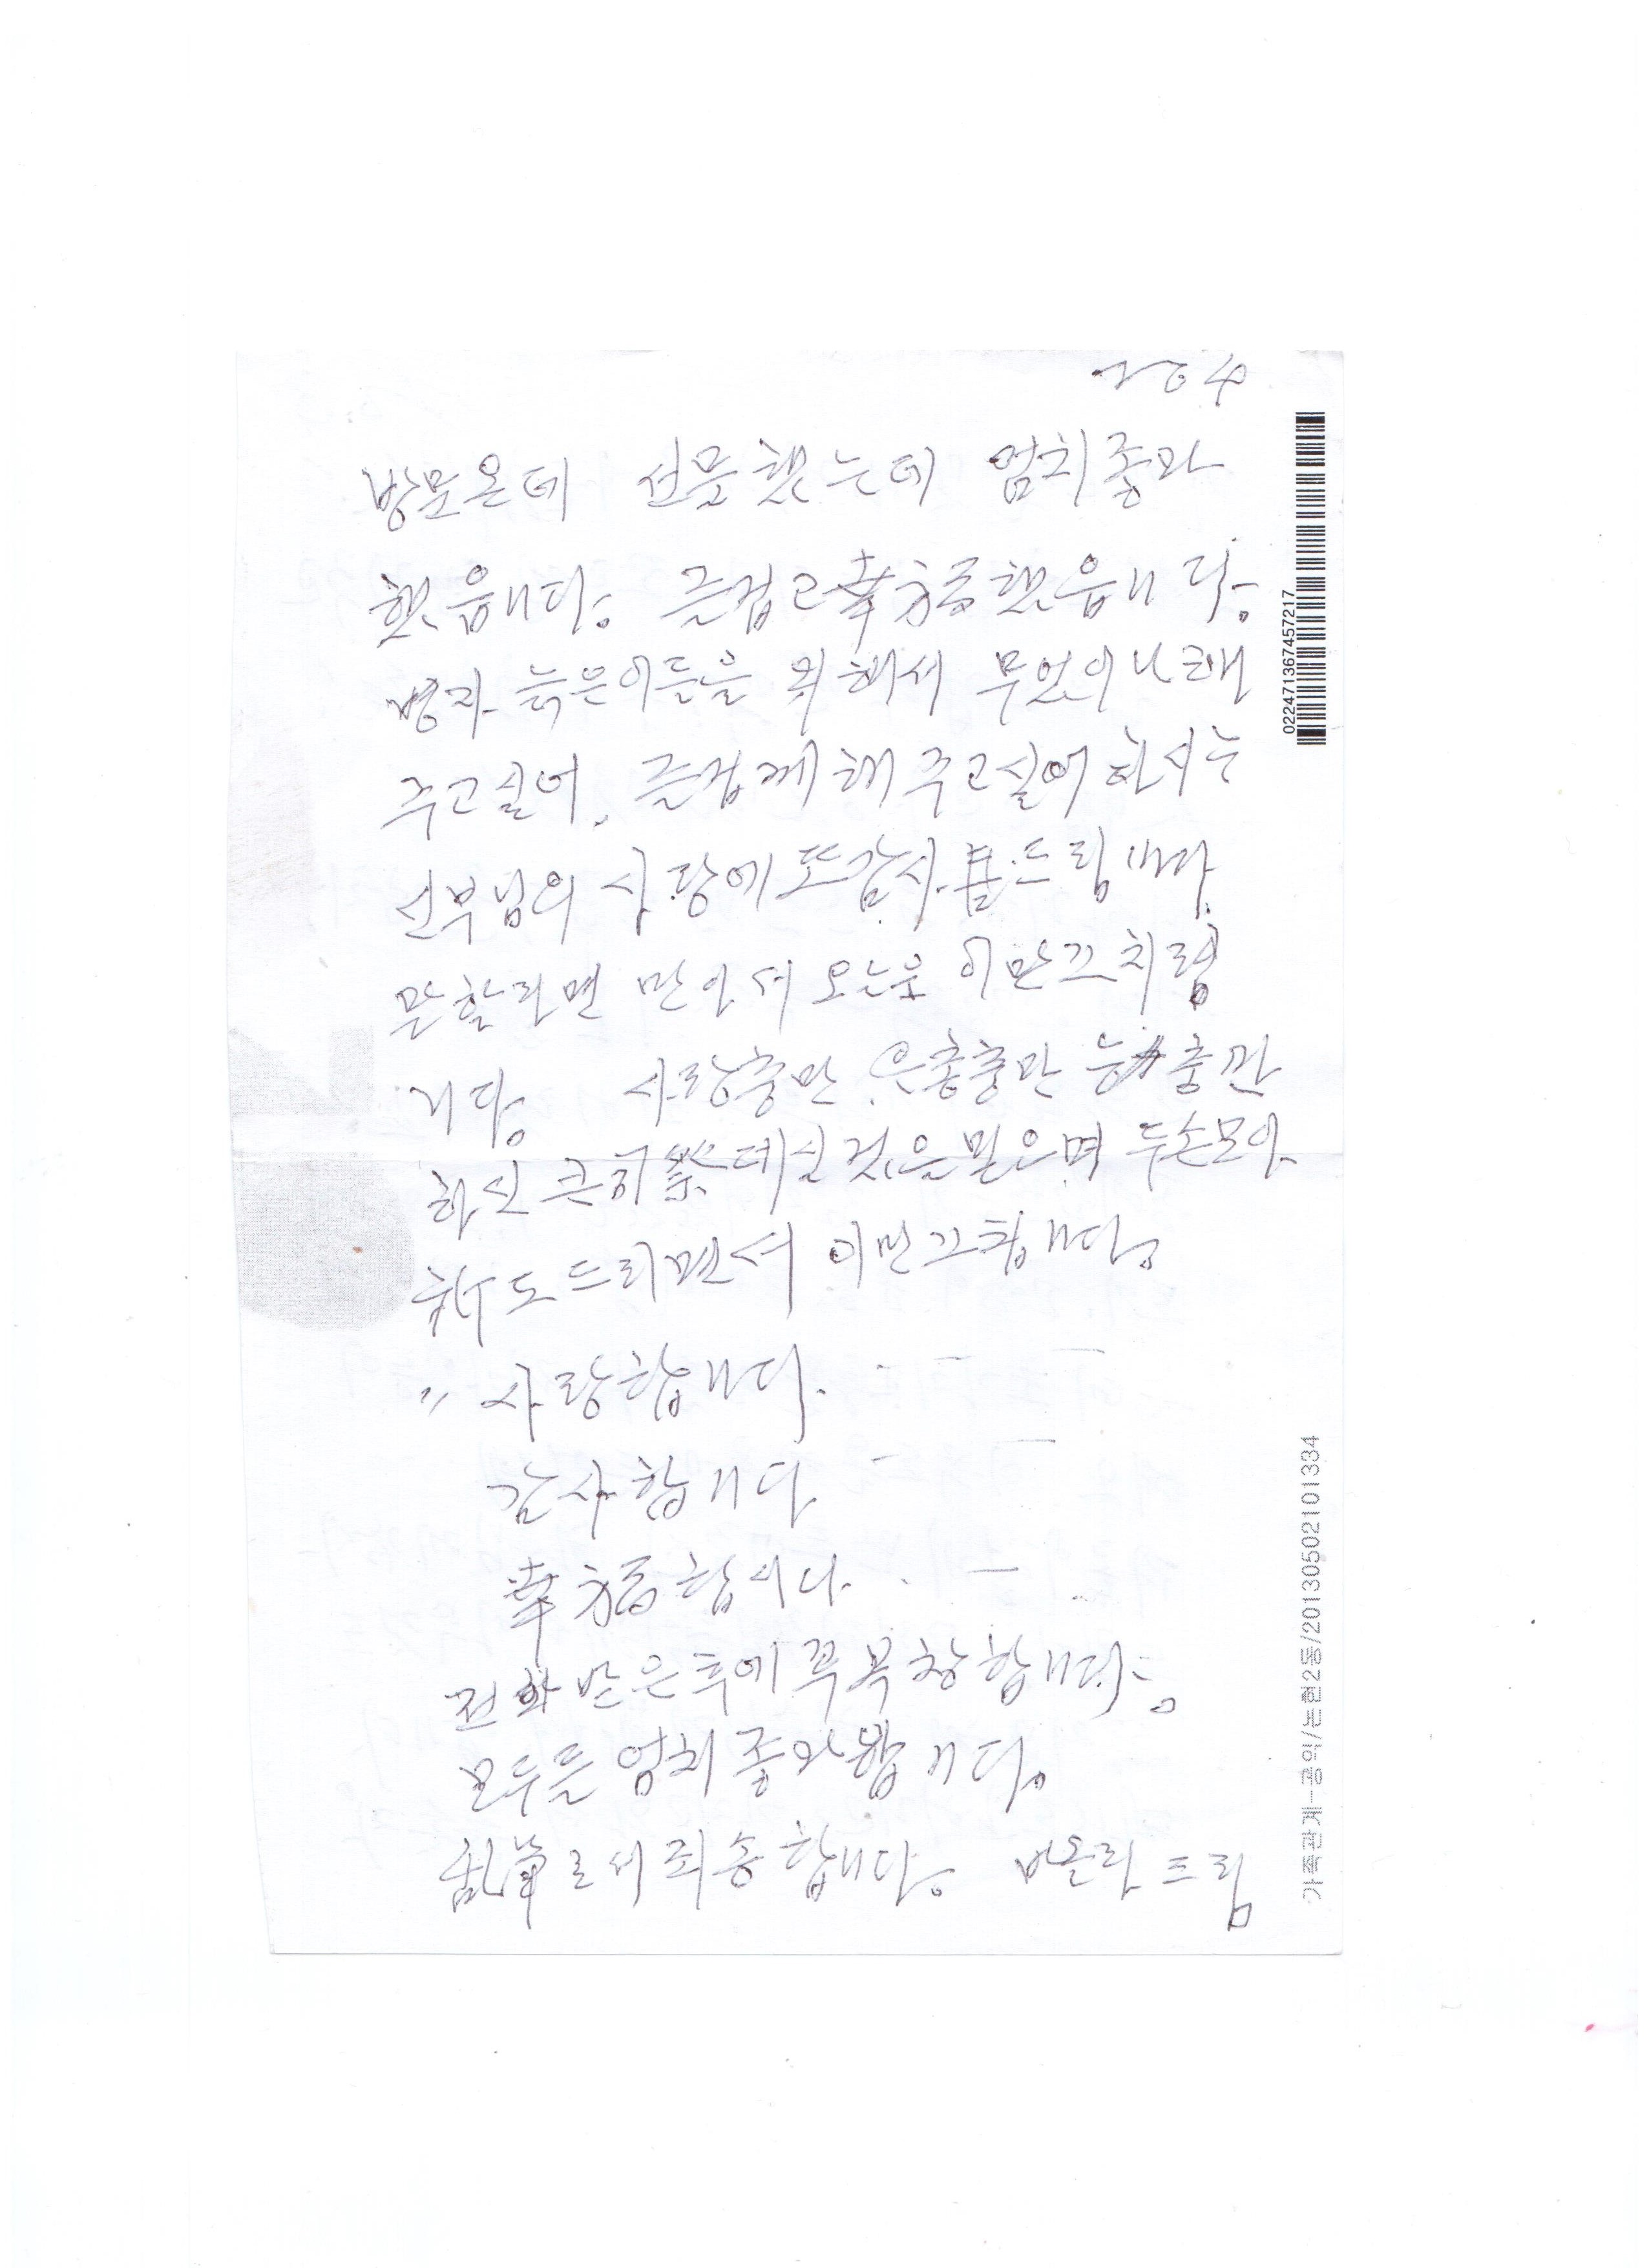 No 4
방문온데 선물했는데 엄치 좋와
했읍니다. 즐겁고 幸福했읍니다.
병자 늙은이들을 위해서 무엇이나 해
주고싶어, 즐겁께 해주고싶어 하시는
신부님의 사랑에 또 감사 드림니다
말할라면 만아서 오늘은 이만 끄치렵
니다. 사랑충만 은총충만 충만
하신 큰 데실것을 믿으며 두손모아
祈도드리면서 이만 끄침니다.
" 사랑합니다.
감사합니다
幸福합니다.
전화 받은 후에 꼭 복창합니다.
모두들 엄치 좋와합니다.
乱筆로서 죄송합니다. 드림
0224713674572​17
가족관계-공익/논현2동/20130502101334